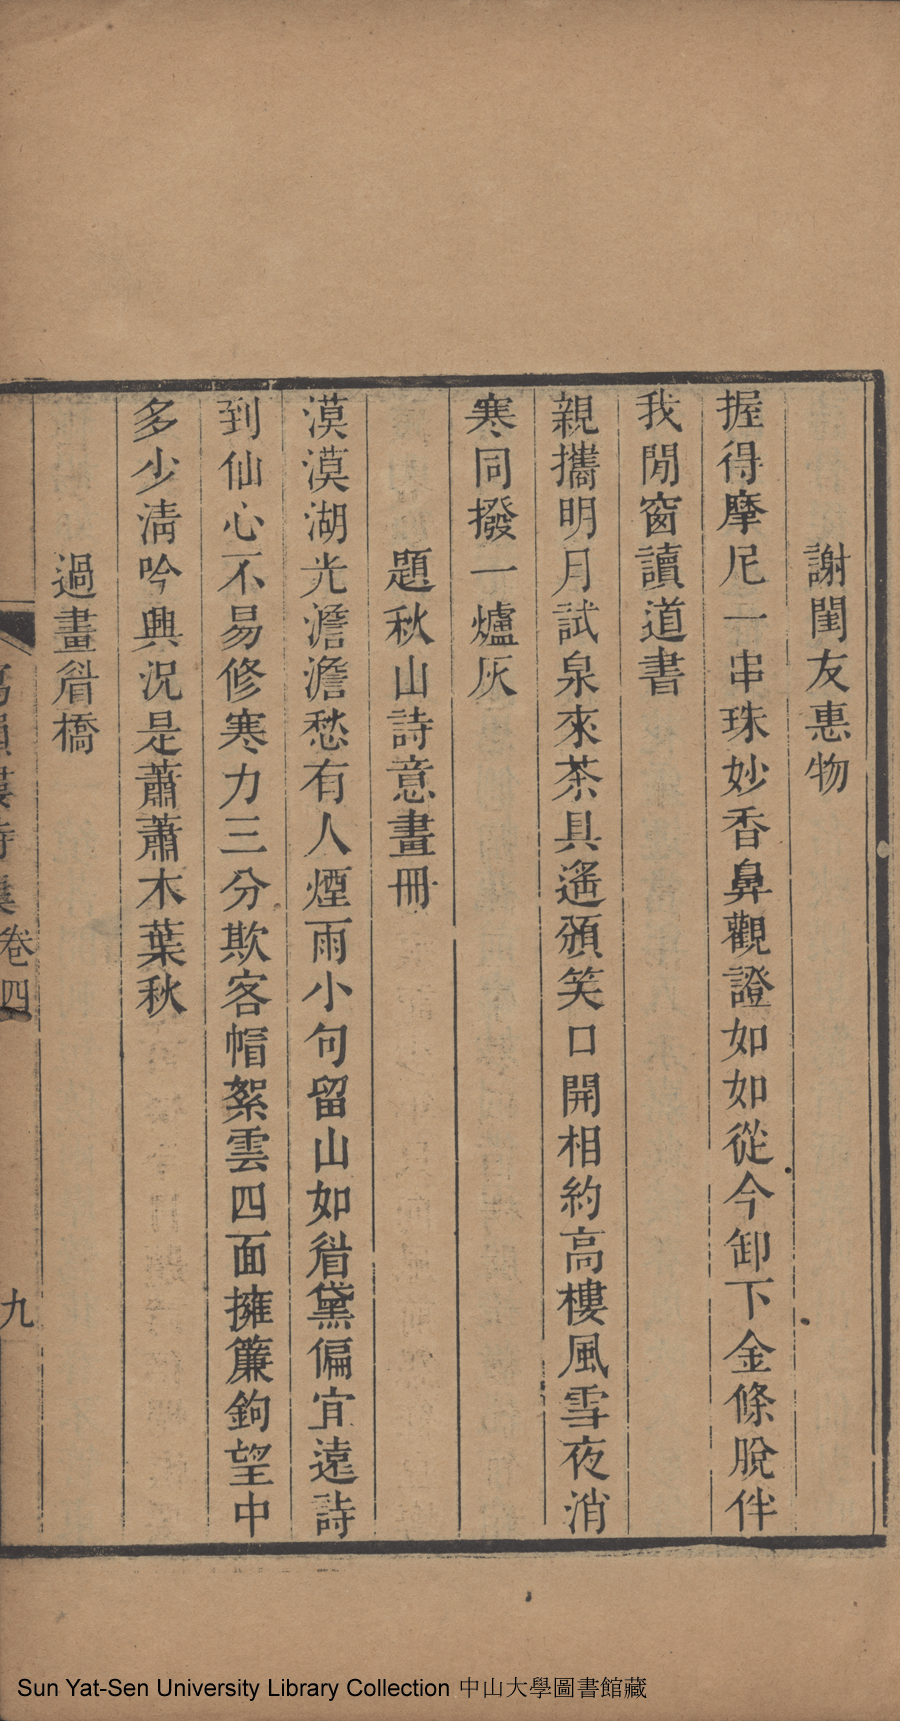 謝閨友惠物
握得摩尼一串珠妙香鼻觀證如如從今卸下金條脫伴
我閒窗讀道書
親攜明月試泉來茶具遙頒笑口開相約高樓風雪夜消
寒同撥一爐灰
題秋山詩意畫冊
漠漠湖光澹澹愁有人煙雨小句留山如眉黛偏宜遠詩
到仙心不易修寒力三分欺客帽絮雲四面擁簾鉤望中
多少淸吟興況是蕭蕭木葉秋
過畫眉橋
寫韻樓詩集卷四
九
Sun Yat-Sen University Library Collection 中山大學圖書館藏